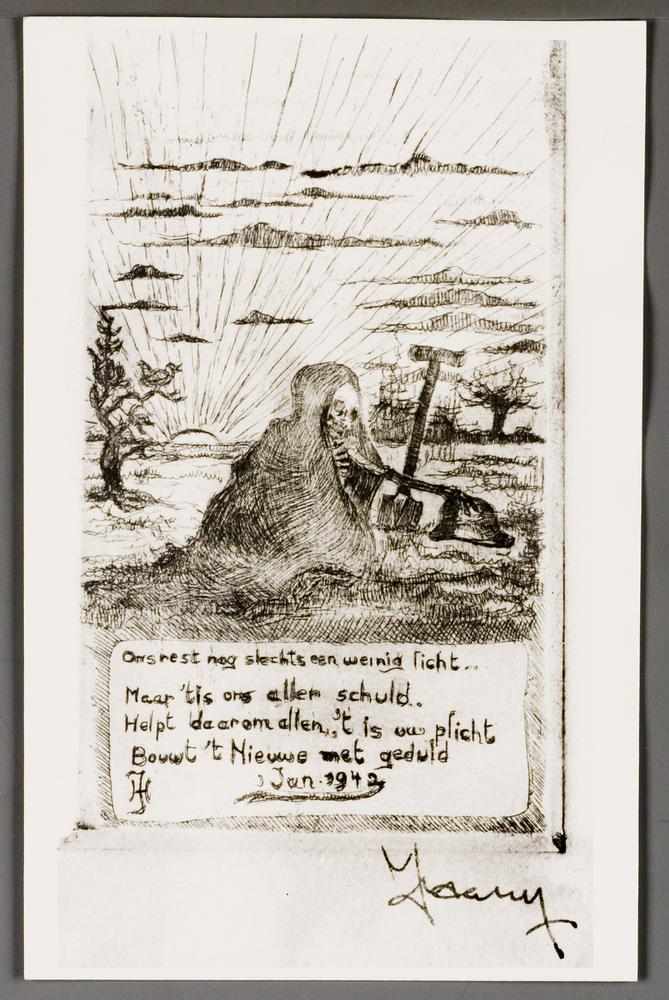 Ons rest nog slechts een weinig licht...
Maar 'tis ons aller schuld.
Helpt daarom allen, 't is uw plicht
Bouwt 't Nieuwe met geduld
1 Jan. 1942